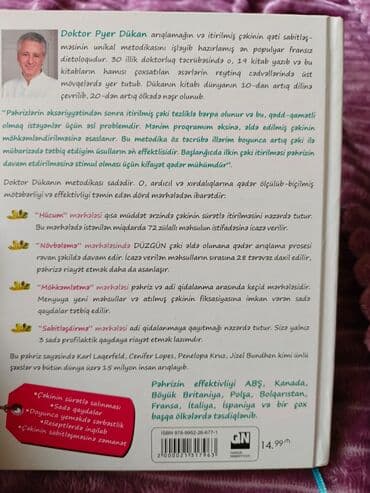 Doktor Pyer Dükan arıqlamağın və itirilmiş çəkinin qəti sabitləş-
məsinin unikal metodikasını işləyib hazırlamış ən populyar fransız
dietoloqudur. 30 illik doktorluq təcrübəsində o, 19 kitab yazıb və bu
kitabların hamısı çoxsatılan əsərlərin reytinq cədvəllərində üst
mövqelərdə yer tutub. Dükanın kitabı dünyanın 10-dan artıq dilinə
çevrilib, 20-dən artıq ölkədə nəşr olunub.
"Pəhrizlərin əksəriyyətindən sonra itirilmiş çəki tezliklə bərpa olunur və bu, qədd-qamətli
olmaq istəyənlər üçün əsl problemdir. Mənim proqramım əksinə, əldə edilmiş çəkinin
möhkəmləndirilməsinə əsaslanır. Bu metodika öz təcrübə illərim boyunca artıq çəki ilə
mübarizədə tətbiq etdiyim üsulların ən effektlisidir. Başlanğıcda ilkin çəki itirilməsi pəhrizin
davam etdirilməsinə stimul olması üçün kifayət qədər mühümdür".
Doktor Dükanın metodikası sadədir. O, ardıcıl və xırdalıqlarına qədər ölçülüb-biçilmiş
mötəbərliyi və effektivliyi təmin edən dörd mərhələdən ibarətdir:
"Hücum" mərhələsi qısa müddət ərzində çəkinin sürətlə itirilməsini nəzərdə tutur.
Bu mərhələdə istənilən miqdarda 72 zülallı məhsulun istifadəsinə icazə verilir.
"Növbələmə" mərhələsində DÜZGÜN çəki əldə olunana qədər arıqlama prosesi
rəvan şəkildə davam edir. İcazə verilən məhsulların sırasına 28 tərəvəz daxil edilir,
pəhrizə riayət etmək daha da asanlaşır.
"Möhkəmlətmə" mərhələsi pəhriz və adi qidalanma arasında keçid mərhələsidir.
Menyuya yeni məhsullar və atılmış çəkinin fiksasiyasına imkan verən sadə
qaydalar tətbiq edilir.
"Sabitləşdirmə" mərhələsi adi qidalanmaya qayıtmağı nəzərdə tutur. Sizə yalnız
3 sadə profilaktik qaydaya riayət etmək lazımdır.
Bu pəhriz sayəsində Karl Laqerfeld, Cenifer Lopes, Penelopa Kruz, Jizel Bundhen kimi ünlü
şəxslər və bütün dünya üzrə 15 milyon insan arıqlayıb.
Pəhrizin effektivliyi ABŞ, Kanada,
Böyük Britaniya, Polşa, Bolqarıstan,
Fransa, İtaliya, İspaniya və bir çox
başqa ölkələrdə təsdiqlənib.
• Çəkinin sürətlə salınması
• Sadə qaydalar
• Doyunca yeməkdə sərbəstlik
• Reseptlərdə inqilab
• Çəkinin sabitləşməsinə zəmanət
ISBN 978-9952-26-677-1
2000021317963
14.99